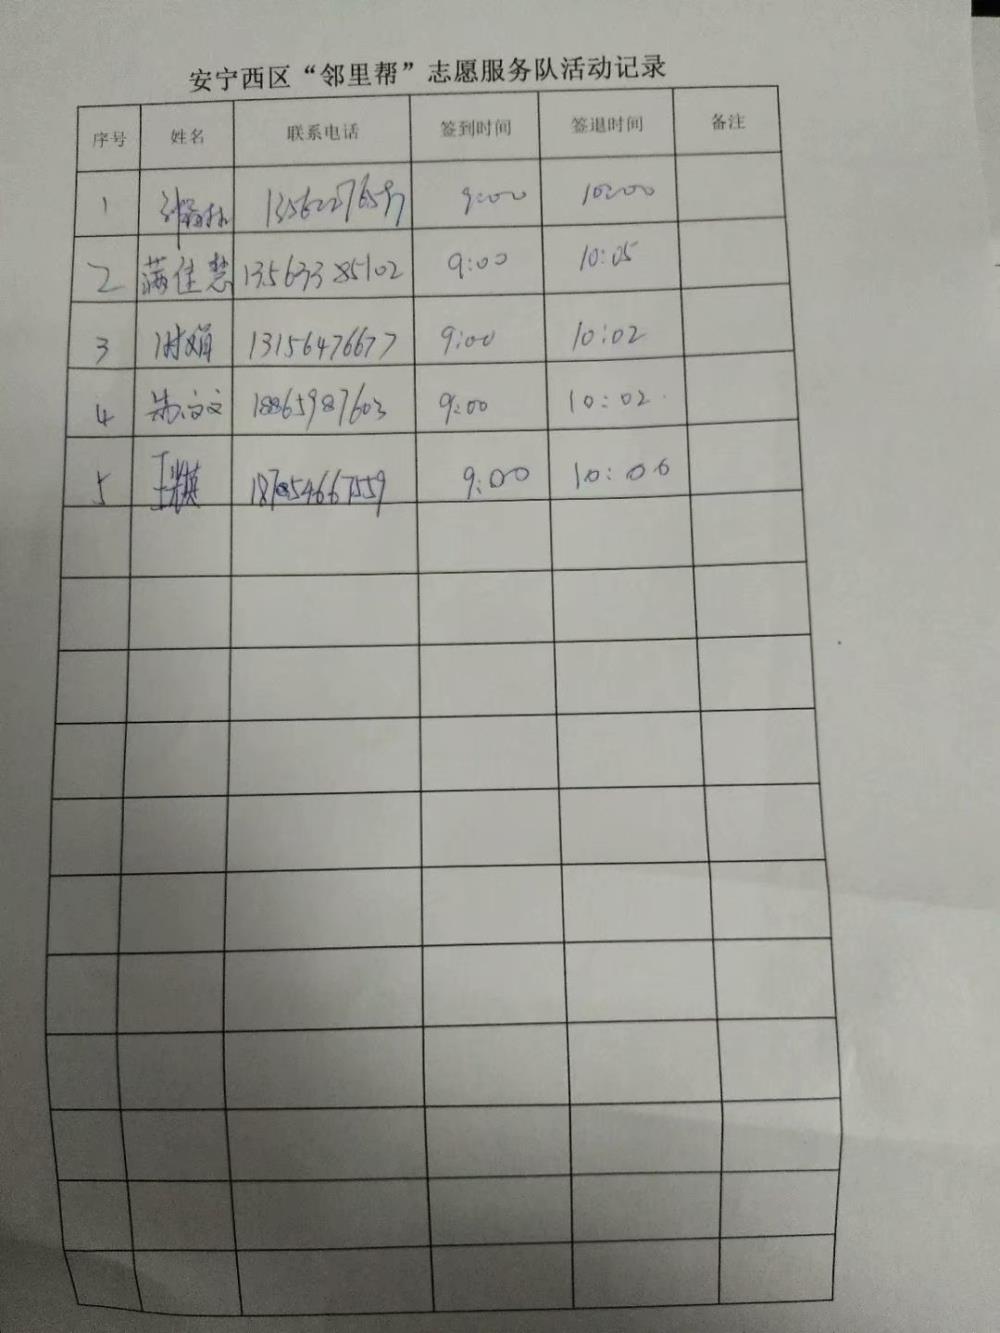 安宁西区“邻里帮”志愿服务队活动记录
序号 姓名 联系电话 签到时间 签退时间 备注
1 9:00 10:00
2 满佳慧 13563385102 9:00 10:05
3 时娟 13156476677 9:00 10:02
4 朱文文 18865987603 9:00 10:02
5 9:00 10:06